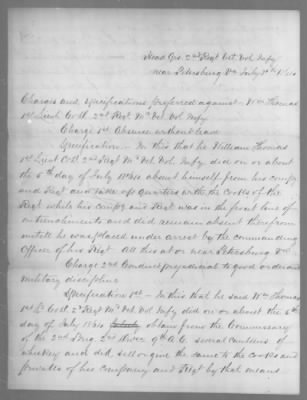 Head Qrs 2nd Regt Vet. Vol. Infy
near Petersburg Va July 1864
Charges and Specifications preferred against Wm Thomas
1st Lieut Co H. 2nd Regt Md Vet. Vol. Infy.
Charge 1st Absence without leave
Specification.. In this that he William Thomas
1st Lieut Co H. 2nd Regt Md Vet. Vol. Infy did on or about
the 6th day of July 1864 absent himself from his comp
and Regt and take up Quarters with the cooks of the
Regt while his comp and Regt was in the front line of
entrenchments and did remain absent therefrom
until he was placed under arrest by the commanding
Officer of his Regt. All this at or near Petersburg Va
Charge 2nd Conduct prejudicial to good order and
military discipline
Specification 1st – In this that he said Wm Thomas
1st Lt Co H 2nd Regt Md Vet. Vol. Infy did on or about the 6th
day of July 1864 obtain from the Commissary
of the 2nd Brig. 2nd Divis 9th A.C. several canteens of
whiskey and did sell or give the same to the cooks and
privates of his company and Regt by that means